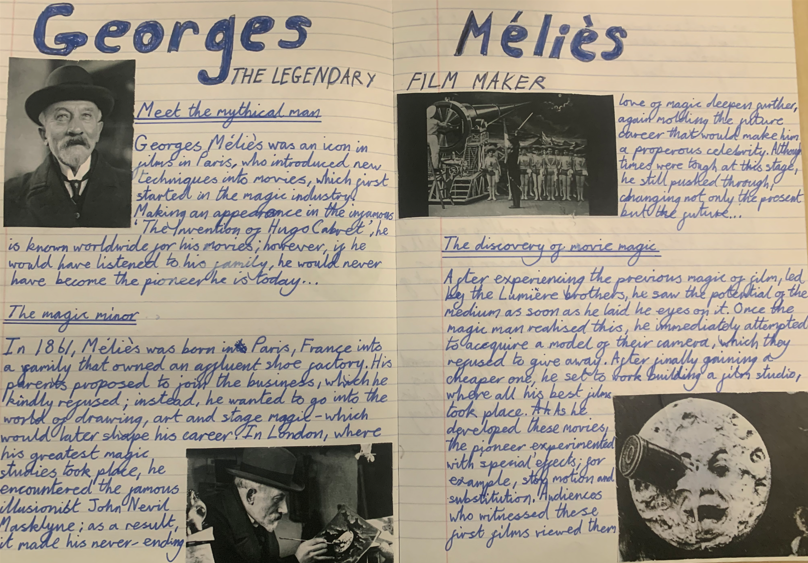 Georges Méliès
THE LEGENDARY FILM MAKER
Meet the mythical man
Georges Méliès was an icon in
films in Paris, who introduced new
techniques into movies, which first
started in the magic industry.
Making an appearance in the infamous
'The Invention of Hugo Cabret', he
is known worldwide for his movies; however, if he
would have listened to his family, he would never
have become the pioneer he is today...
The magic minor
In 1861, Méliès was born into Paris, France into
a family that owned an affluent shoe factory. His
parents proposed to join the business, which he
kindly refused; instead, he wanted to go into the
world of drawing, art and stage magic - which
would later shape his career. In London, where
his greatest magic
studies took place, he
encountered the famous
illusionist John Nevil
Masklyne; as a result,
it made his never-ending
love of magic deepen further,
again molding the future
career that would make him
a properous celebrity. Although
times were tough at this stage,
he still pushed through,
changing not only the present
but the future...
The discovery of movie magic
After experiencing the previous magic of film, led
by the Lumière brothers, he saw the potential of the
medium as soon as he laid he eyes on it. Once the
magic man realised this, he immediately attempted
to acequire a model of their camera, which they
refused to give away. After finally gaining a
cheaper one, he set to work building a film studio,
where all his best films
took place. As he
developed these movies,
the pioneer experimented
with special effects; for
example, stop motion and
substitution. Audiences
who witnessed these
first films viewed them